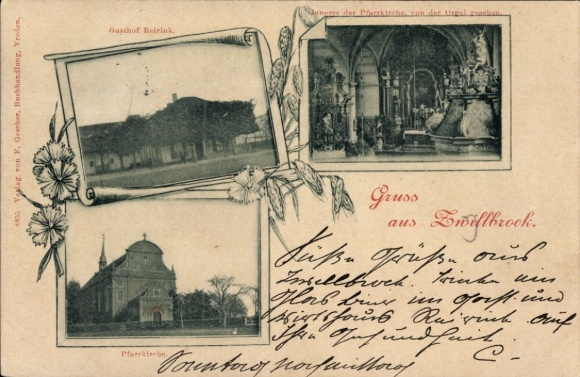 Gasthof Reirink.
Inneres der Pfarrkirche, von der Orgel gesehen.
6855 Verlag von F. Gescher, Buchhandlung, Vreden.
Gruss
aus Zwillbrock.
Süße Grüße aus
Zwillbrock. Trinke ein
Glas Bier im Gast und
Wirtshaus Reirink auf
Ihre Gesundheit.
C-
Pfarrkirche.
Sonntag nachmittag